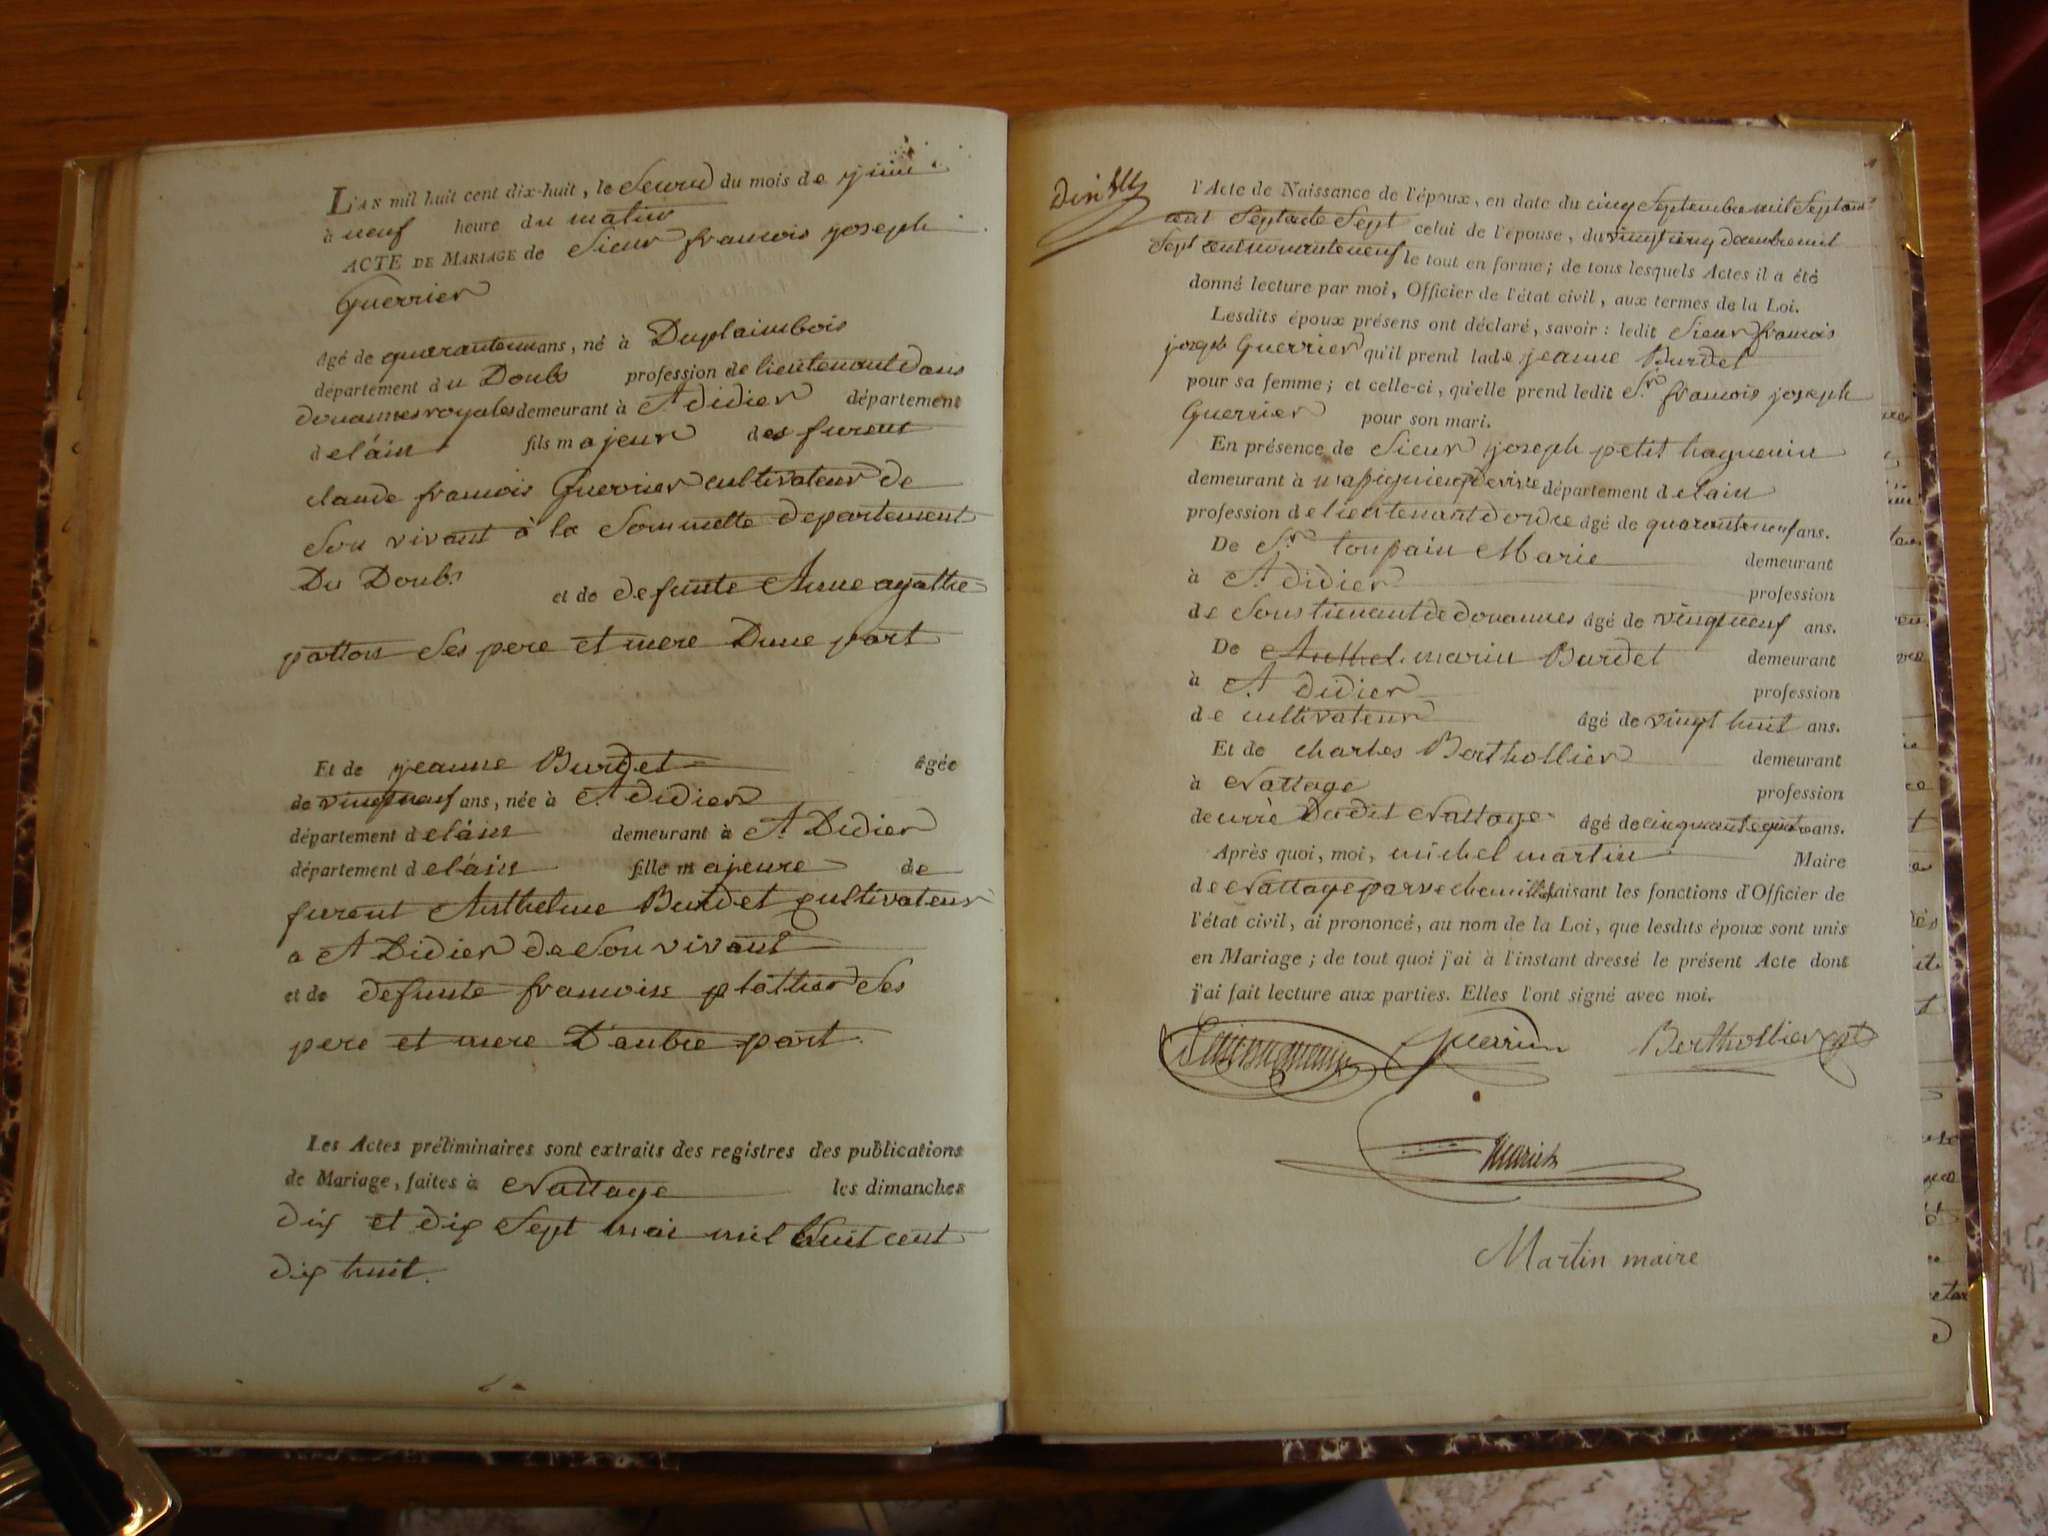 L'AN mil huit cent dix-huit, le Second du mois de juin
à neuf heure du matin
ACTE DE MARIAGE de Sieur francois joseph
Guerrier
âgé de quaranteun ans, né à Duplaimbois
département du Doubs profession de lieutenant Dans
douannes royales demeurant à St didier département
de láin fils majeur des furent
claude francois Guerrier cultivateur de
Son vivant à la Sommette departement
Du Doubs
et de defunte Anne agathe
patton Ses pere et mere Dune part
Et de jeanne Burdet âgée
de vingneuf ans, née à St Didier
département de láin demeurant à St Didier
département de láin fille majeure de
furent Anthelme Burdet cultivateur
a St Didier de Son vivant
et de defunte francoise plattier Ses
pere et mere D'autre part.
Les Actes préliminaires sont extraits des registres des publications
de Mariage, faites à Nattage les dimanches
dix et dix Sept mai mil huit cent
dix huit.
l'Acte de Naissance de l'époux, en date du cinq Septembre mil Sept
cent Septante Sept celui de l'épouse, du
Sept cent le tout en forme; de tous lesquels Actes il a été
donné lecture par moi, Officier de l'état civil, aux termes de la Loi.
Lesdits époux présens ont déclaré, savoir: ledit Sieur francois
joseph Guerrier qu'il prend lade jeanne Burdet
pour sa femme; et celle-ci, qu'elle prend ledit Sr. francois joseph
Guerrier pour son mari.
En présence de Sieur joseph petit huguenin
demeurant à département de lain
profession de lieutenant d'ordre âgé de quaranteneuf ans.
De Sr. toupain Marie demeurant
à St didier profession
de Sous lienant de douannes âgé de vingtneuf ans.
De Anthel. marin Burdet demeurant
à St didier profession
de cultivateur âgé de vingt huit ans.
Et de charles Berthollier demeurant
à Nattage profession
de curé Dudit Nattage âgé de ans.
Après quoi, moi, michel martin Maire
de Nattage parvechemille faisant les fonctions d'Officier de
l'état civil, ai prononcé, au nom de la Loi, que lesdits époux sont unis
en Mariage; de tout quoi j'ai à l'instant dressé le présent Acte dont
j'ai fait lecture aux parties. Elles l'ont signé avec moi.
Guerrier Berthollier
Martin maire